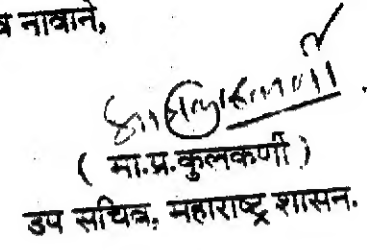 नावाने,
( मा.प्र.कुलकर्णी )
उप सचिव, महाराष्ट्र शासन.